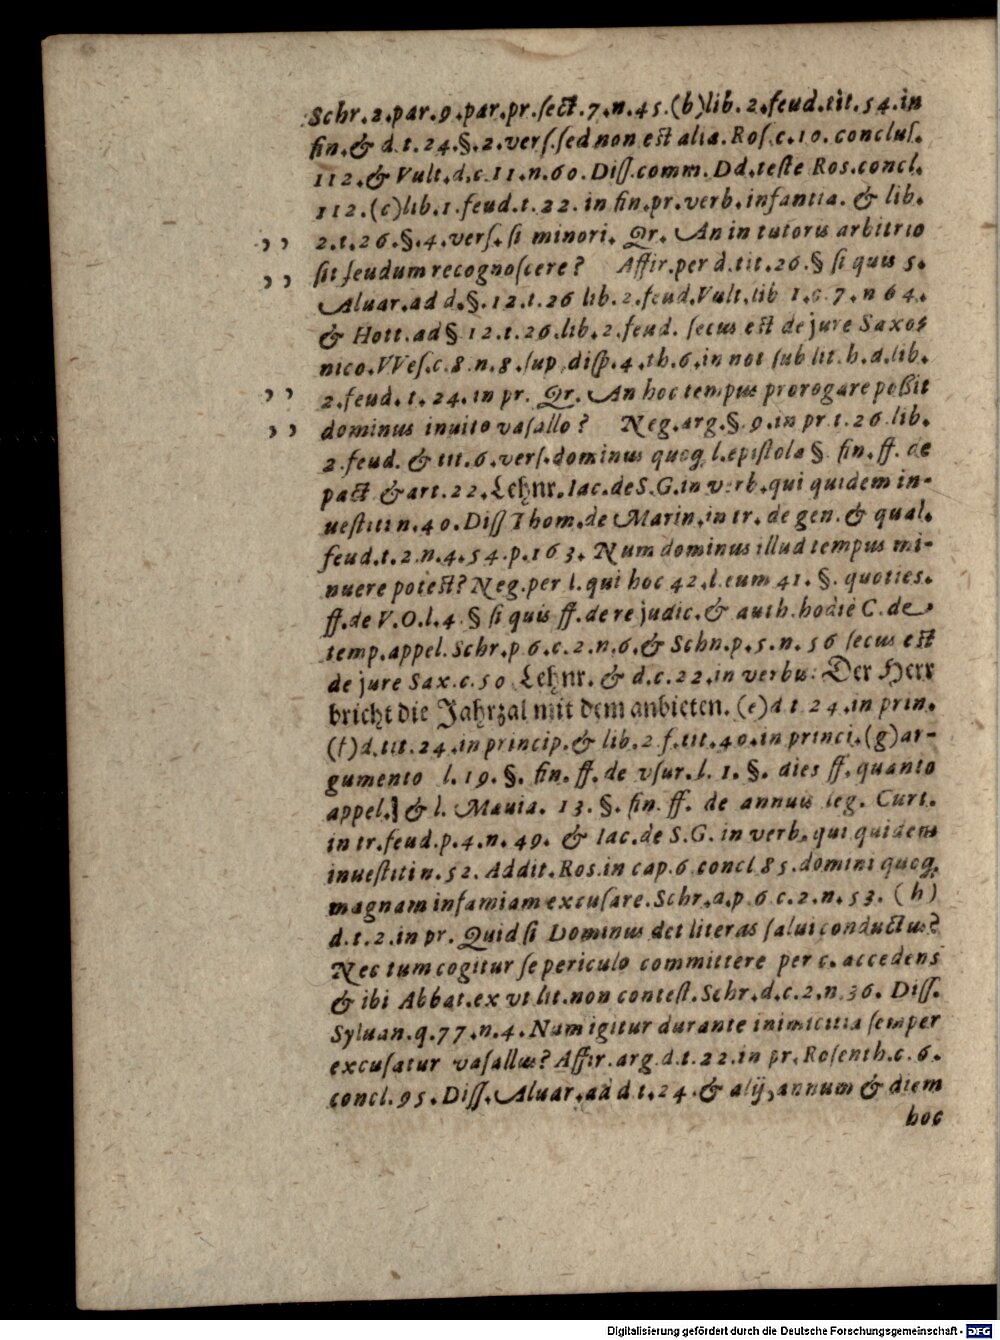 Schr.2.par.9.par.pr.ſect.7.n.45.(b)lib.2.feud.tit.54.in
fin.& d.t.24.§.2.verſ.ſed non est alia.Roſ.c.10.concluſ.
112.& Vult.d.c.11.n.60.Diſſ.comm.Dd.teſte Ros.concl.
112.(c)lib.1.feud.t.22.in fin.pr.verb.infantia.& lib.
,, 2.t.26.§.4.verſ.ſi minori. Qr. An in tutoris arbitrio
,, ſit feudum recognoſcere? Affir.per d.tit.26.§ ſi quis 5.
Aluar.ad d.§.12.t.26 lib.2.feud.Vult.lib 1.c.7.n 64.
& Hott.ad § 12.t.26.lib.2.feud. ſecus est de jure Saxo-
nico.VVeſ.c.8.n.8.ſup.diſp.4.th.6.in not ſub lit.h.d.lib.
,, 2.feud.t.24.in pr. Qr. An hoc tempus prorogare poßit
,, dominus inuito vaſallo? Neg.arg.§.9.in pr.t.26.lib.
2.feud. & tit.6.verſ.dominus quoq, l.epiſtola §. fin.ff. de
pact & art.22.Lehnr.Iac.de S.G.in verb.qui quidem in-
ueſtiti n.40.Diſſ Thom.de Marin.in tr. de gen.& qual.
feud.t.2.n.4.54.p.163. Num dominus illud tempus mi-
nuere potest? Neg.per l.qui hoc 42.l.eum 41. §. quoties.
ff.de V.O.l.4 § ſi quis ff.de re judic.& auth.hodiè C.de
temp.appel.Schr.p 6.c.2.n.6.& Schn.p.5.n.56 ſecus est
de jure Sax.c.50 Lehnr. & d.c.22.in verbis: Der Herr
bricht die Jahrzal mit dem anbieten. (e)d t 24.in prin.
(f)d.tit.24.in princip.& lib.2 f.tit.40.in princi.(g)ar-
gumento l.19.§. fin. ff. de vſur.l. 1.§. dies ff.quanto
appel.] & l. Mæuia. 13.§.fin ff. de annuis leg. Curt.
in tr.feud.p.4.n.49. & Iac.de S.G. in verb.qui quidem
inueſtiti n.52. Addit.Ros.in cap.6 concl 85.domini quoq,
magnam infamiam excuſare.Schr.a.p 6 c.2.n.53. (h)
d.t.2.in pr. Quid ſi Dominus det literas ſalui conductus?
Nec tum cogitur ſe periculo committere per c. accedens
& ibi Abbat.ex vt lit.non conteſt.Schr.d.c.2.n 36. Diſſ.
Syluan.q.77.n.4.Num igitur durante inimicitia ſemper
excuſatur vaſallus? Affir.arg.d.t.22.in pr.Roſenth.c.6.
concl.95.Diſſ.Aluar.ad d t.24.& alij,annum & diem
hoc
Digitalisierung gefördert durch die Deutsche Forschungsgemeinschaft - DFG